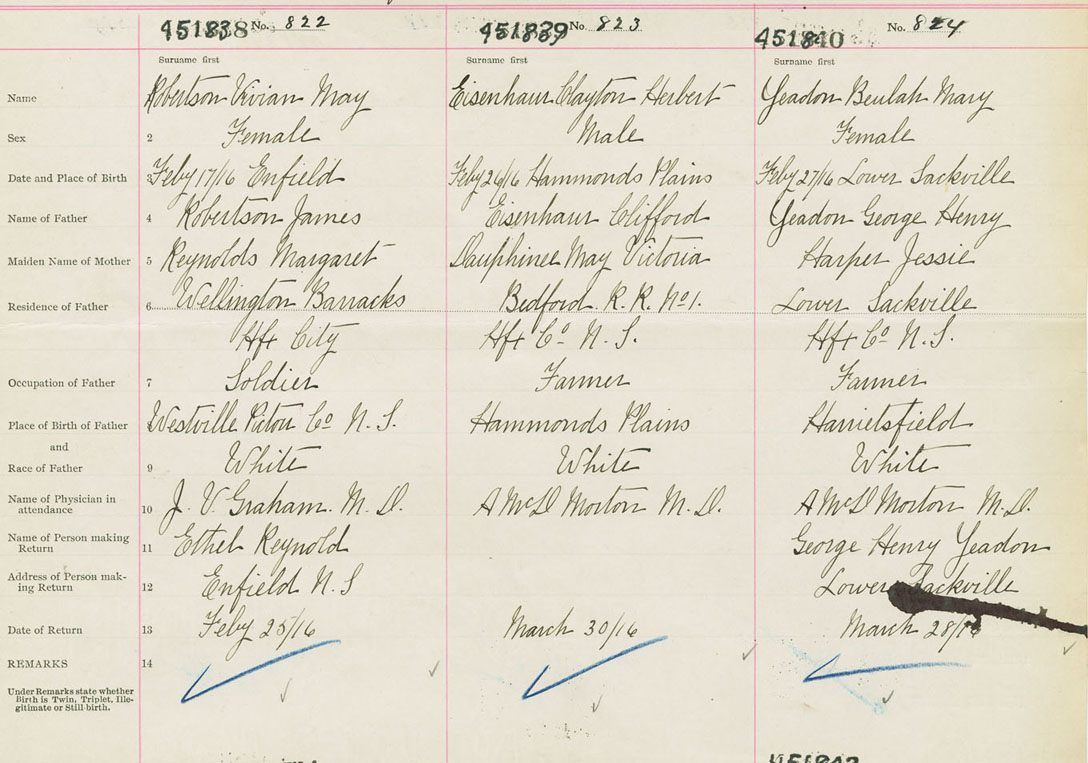 451838 No. 822 451839 No. 823 451840 No. 824
Surname first Surname first Surname first
Name Robertson Vivian May Eisenhaur Clayton Herbert Yeadon Beulah Mary
Sex 2 Female Male Female
Date and Place of Birth 3 Feby 17/16 Enfield Feby 26/16 Hammonds Plains Feby 27/16 Lower Sackville
Name of Father 4 Robertson James Eisenhaur Clifford Yeadon George Henry
Maiden Name of Mother 5 Reynolds Margaret Dauphinee May Victoria Harper Jessie
Residence of Father 6 Wellington Barracks Bedford. R. R. No 1. Lower Sackville
Hfx City Hfx Co N. S. Hfx Co N. S.
Occupation of Father 7 Soldier Farmer Farmer
Place of Birth of Father Westville Pictou Co N. S. Hammonds Plains Harrietsfield
and
Race of Father 9 White White White
Name of Physician in
attendance 10 J. V. Graham. M. D. A McD Morton M. D. A McD Morton M. D.
Name of Person making
Return 11 Ethel Reynold George Henry Yeadon
Address of Person mak-
ing Return 12 Enfield N. S Lower Sackville
Date of Return 13 Feby 25/16 March 30/16 March 28/16
REMARKS 14
Under Remarks state whether
Birth is Twin, Triplet, Ille-
gitimate or Still-birth.